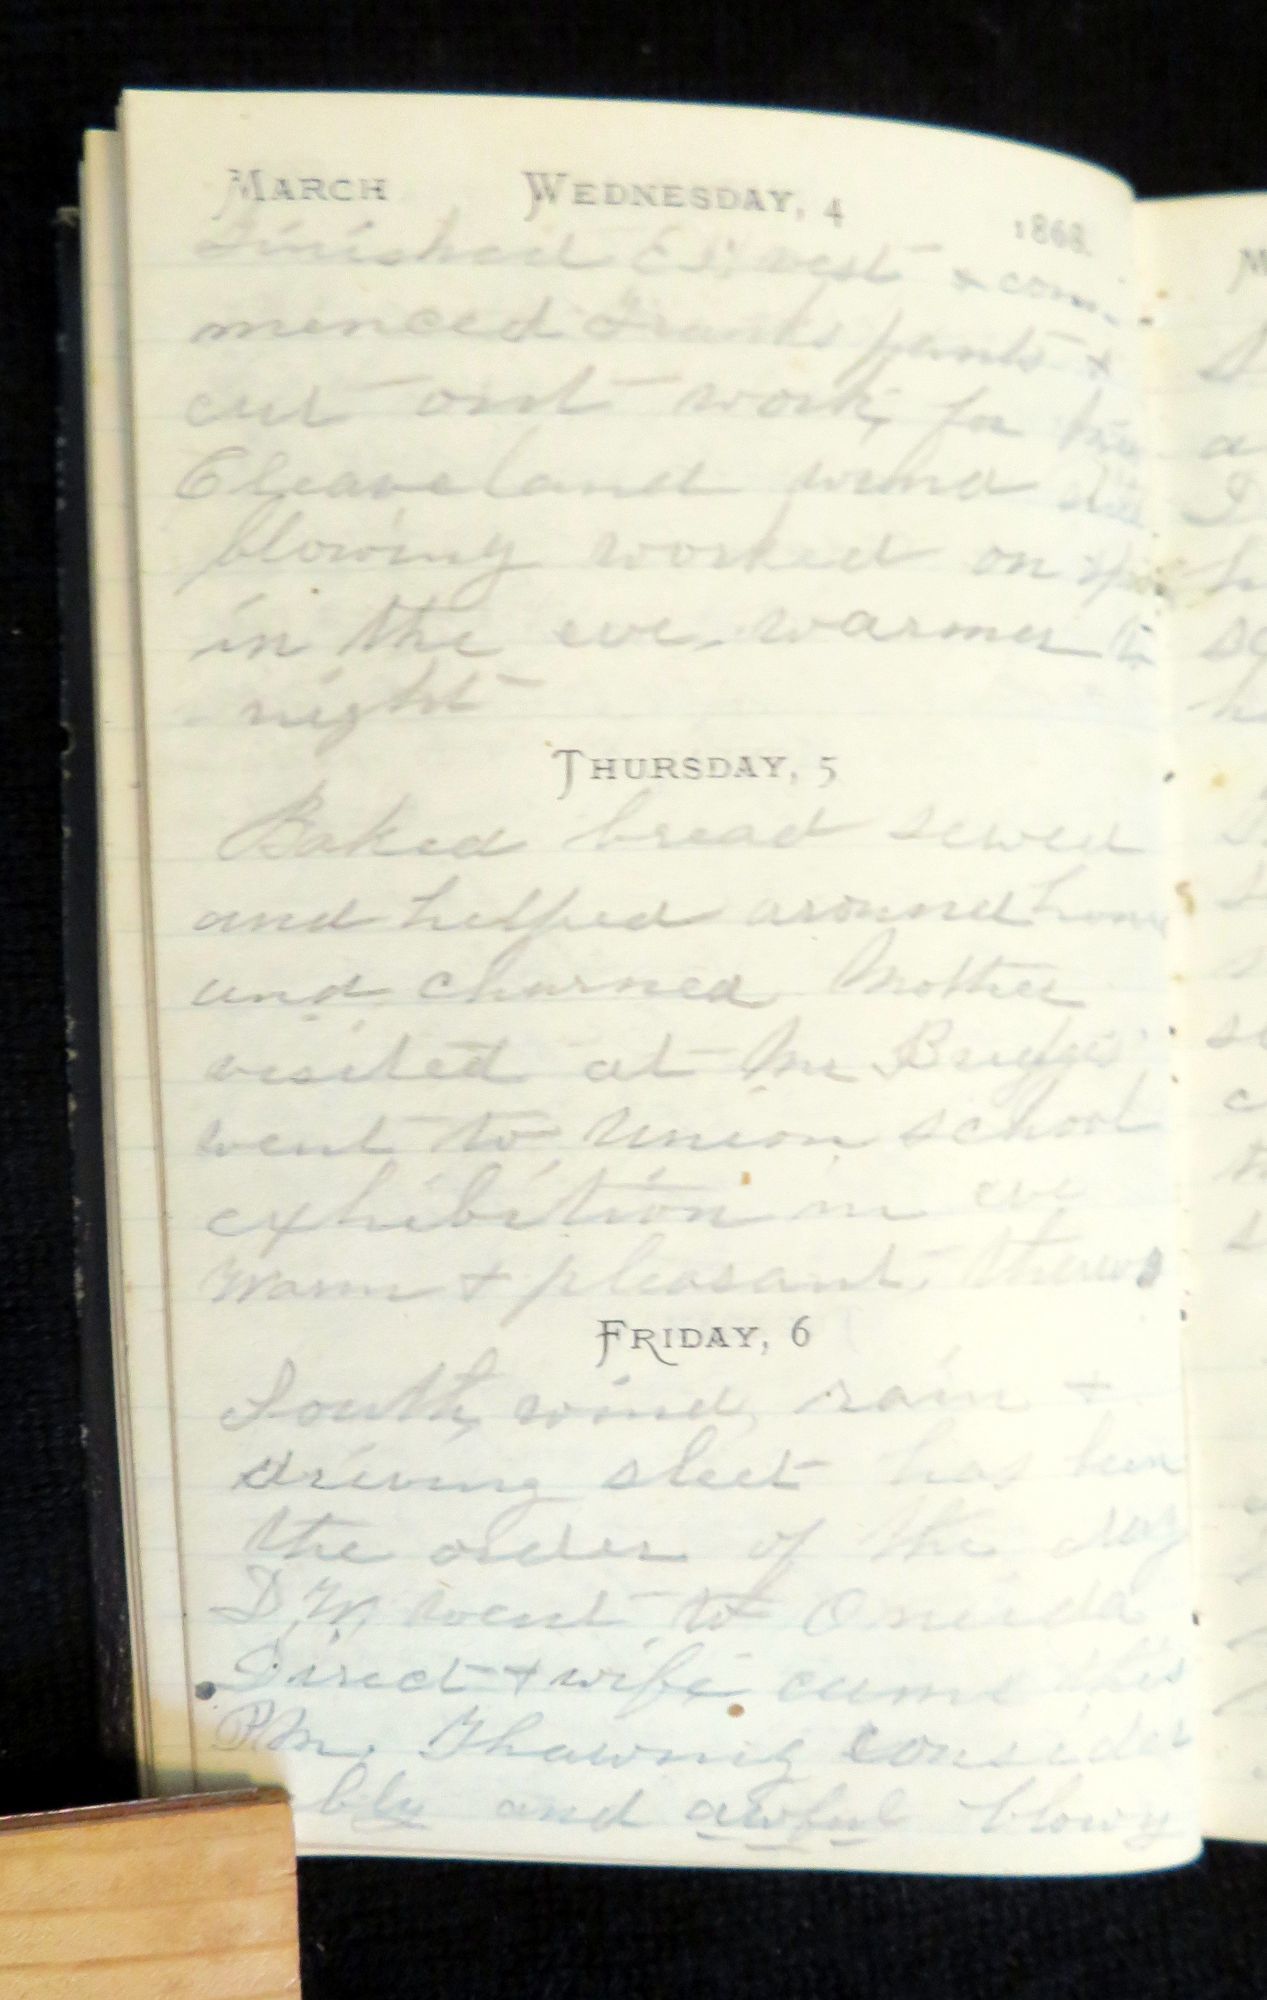 March Wednesday, 4 1868.
Finished Es. vest & com-
menced Franks pants &
cut out work, for
Cleaveland wind still
blowing worked on
in the eve. warmer to
night
Thursday, 5
Baked bread sewed
and helped around home
and churned Mother
visited at Mr Bridges
went to Union school
exhibition in eve
Warm & pleasant.
Friday, 6
South, wind, rain &
driving sleet has been
the order of the day
D. W. went to Oneida
Direct & wife came this
P.M. Thawing consider
bly and awful blowy